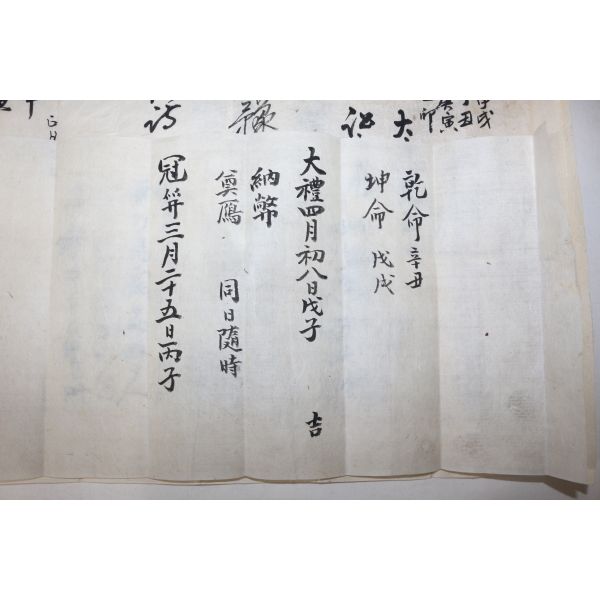 乾命 辛丑
坤命 戊戌
大禮四月初八日戊子 吉
納幣
奠鴈 同日隨時
冠笄三月二十五日丙子